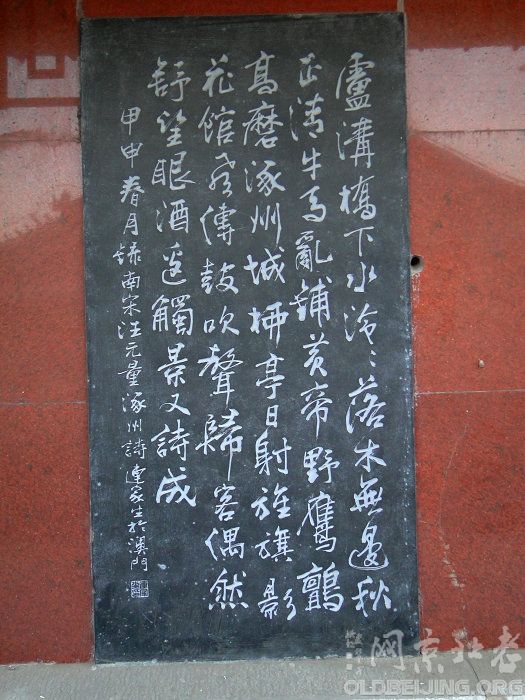 盧溝橋下水泠〻落木無邊秋
正清牛馬亂鋪黄帝野鷹鸇
高磨涿州城柳亭日射旌旗影
花館風傳鼓吹聲歸客偶然
舒望眼酒邊觸景又詩成
甲申春月録南宋汪元量涿州詩連家生於澳門
老北京网
OLDBEIJING.ORG